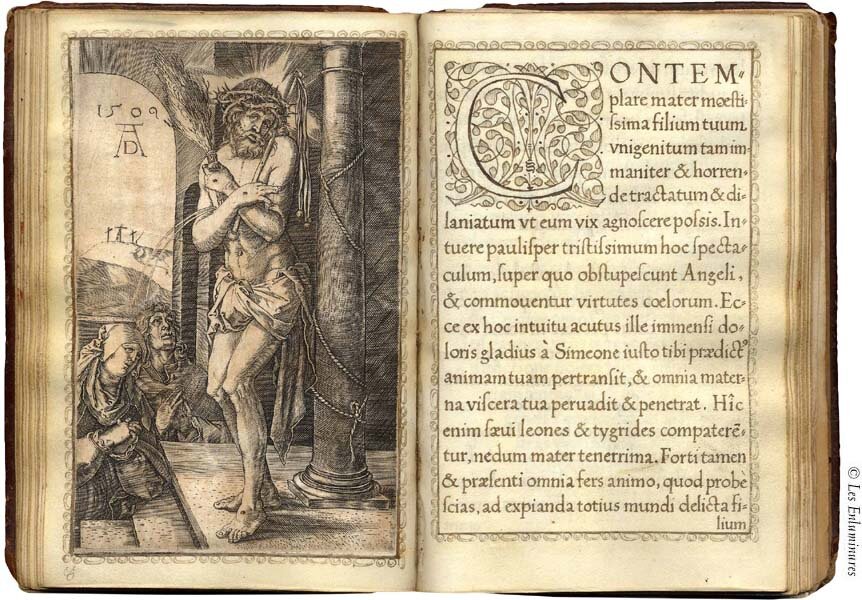 1509
AD
CONTEM-
plare mater mœsti-
ssima filium tuum
vnigenitum tam im-
maniter & horren-
de tractatum & di-
laniatum vt eum vix agnoscere possis. In-
tuere paulisper tristissimum hoc specta-
culum, super quo obstupescunt Angeli,
& commouentur virtutes coelorum. Ec-
ce ex hoc intuitu acutus ille immensi do-
loris gladius à Simeone iusto tibi prædictꝰ
animam tuam pertransit, & omnia mater-
na viscera tua peruadit & penetrat. Hîc
enim sæui leones & tygrides compaterẽ-
tur, nedum mater tenerrima. Forti tamen
& præsenti omnia fers animo, quod probè
scias, ad expianda totius mundi delicta fi-
lium
© Les Enluminures